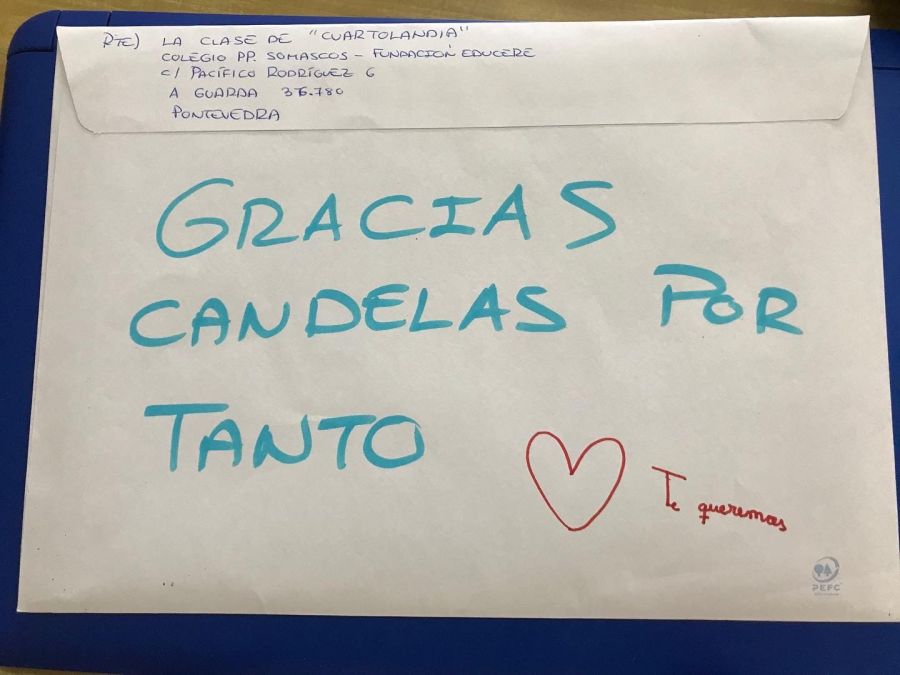 RTE) LA CLASE DE "CUARTOLANDIA"
COLEGIO PP. SOMASCOS - FUNDACIÓN EDUCERE
C/ PACÍFICO RODRÍGUEZ 6
A GUARDA 36.780
PONTEVEDRA
GRACIAS
CANDELAS POR
TANTO
Te queremos
PEFC